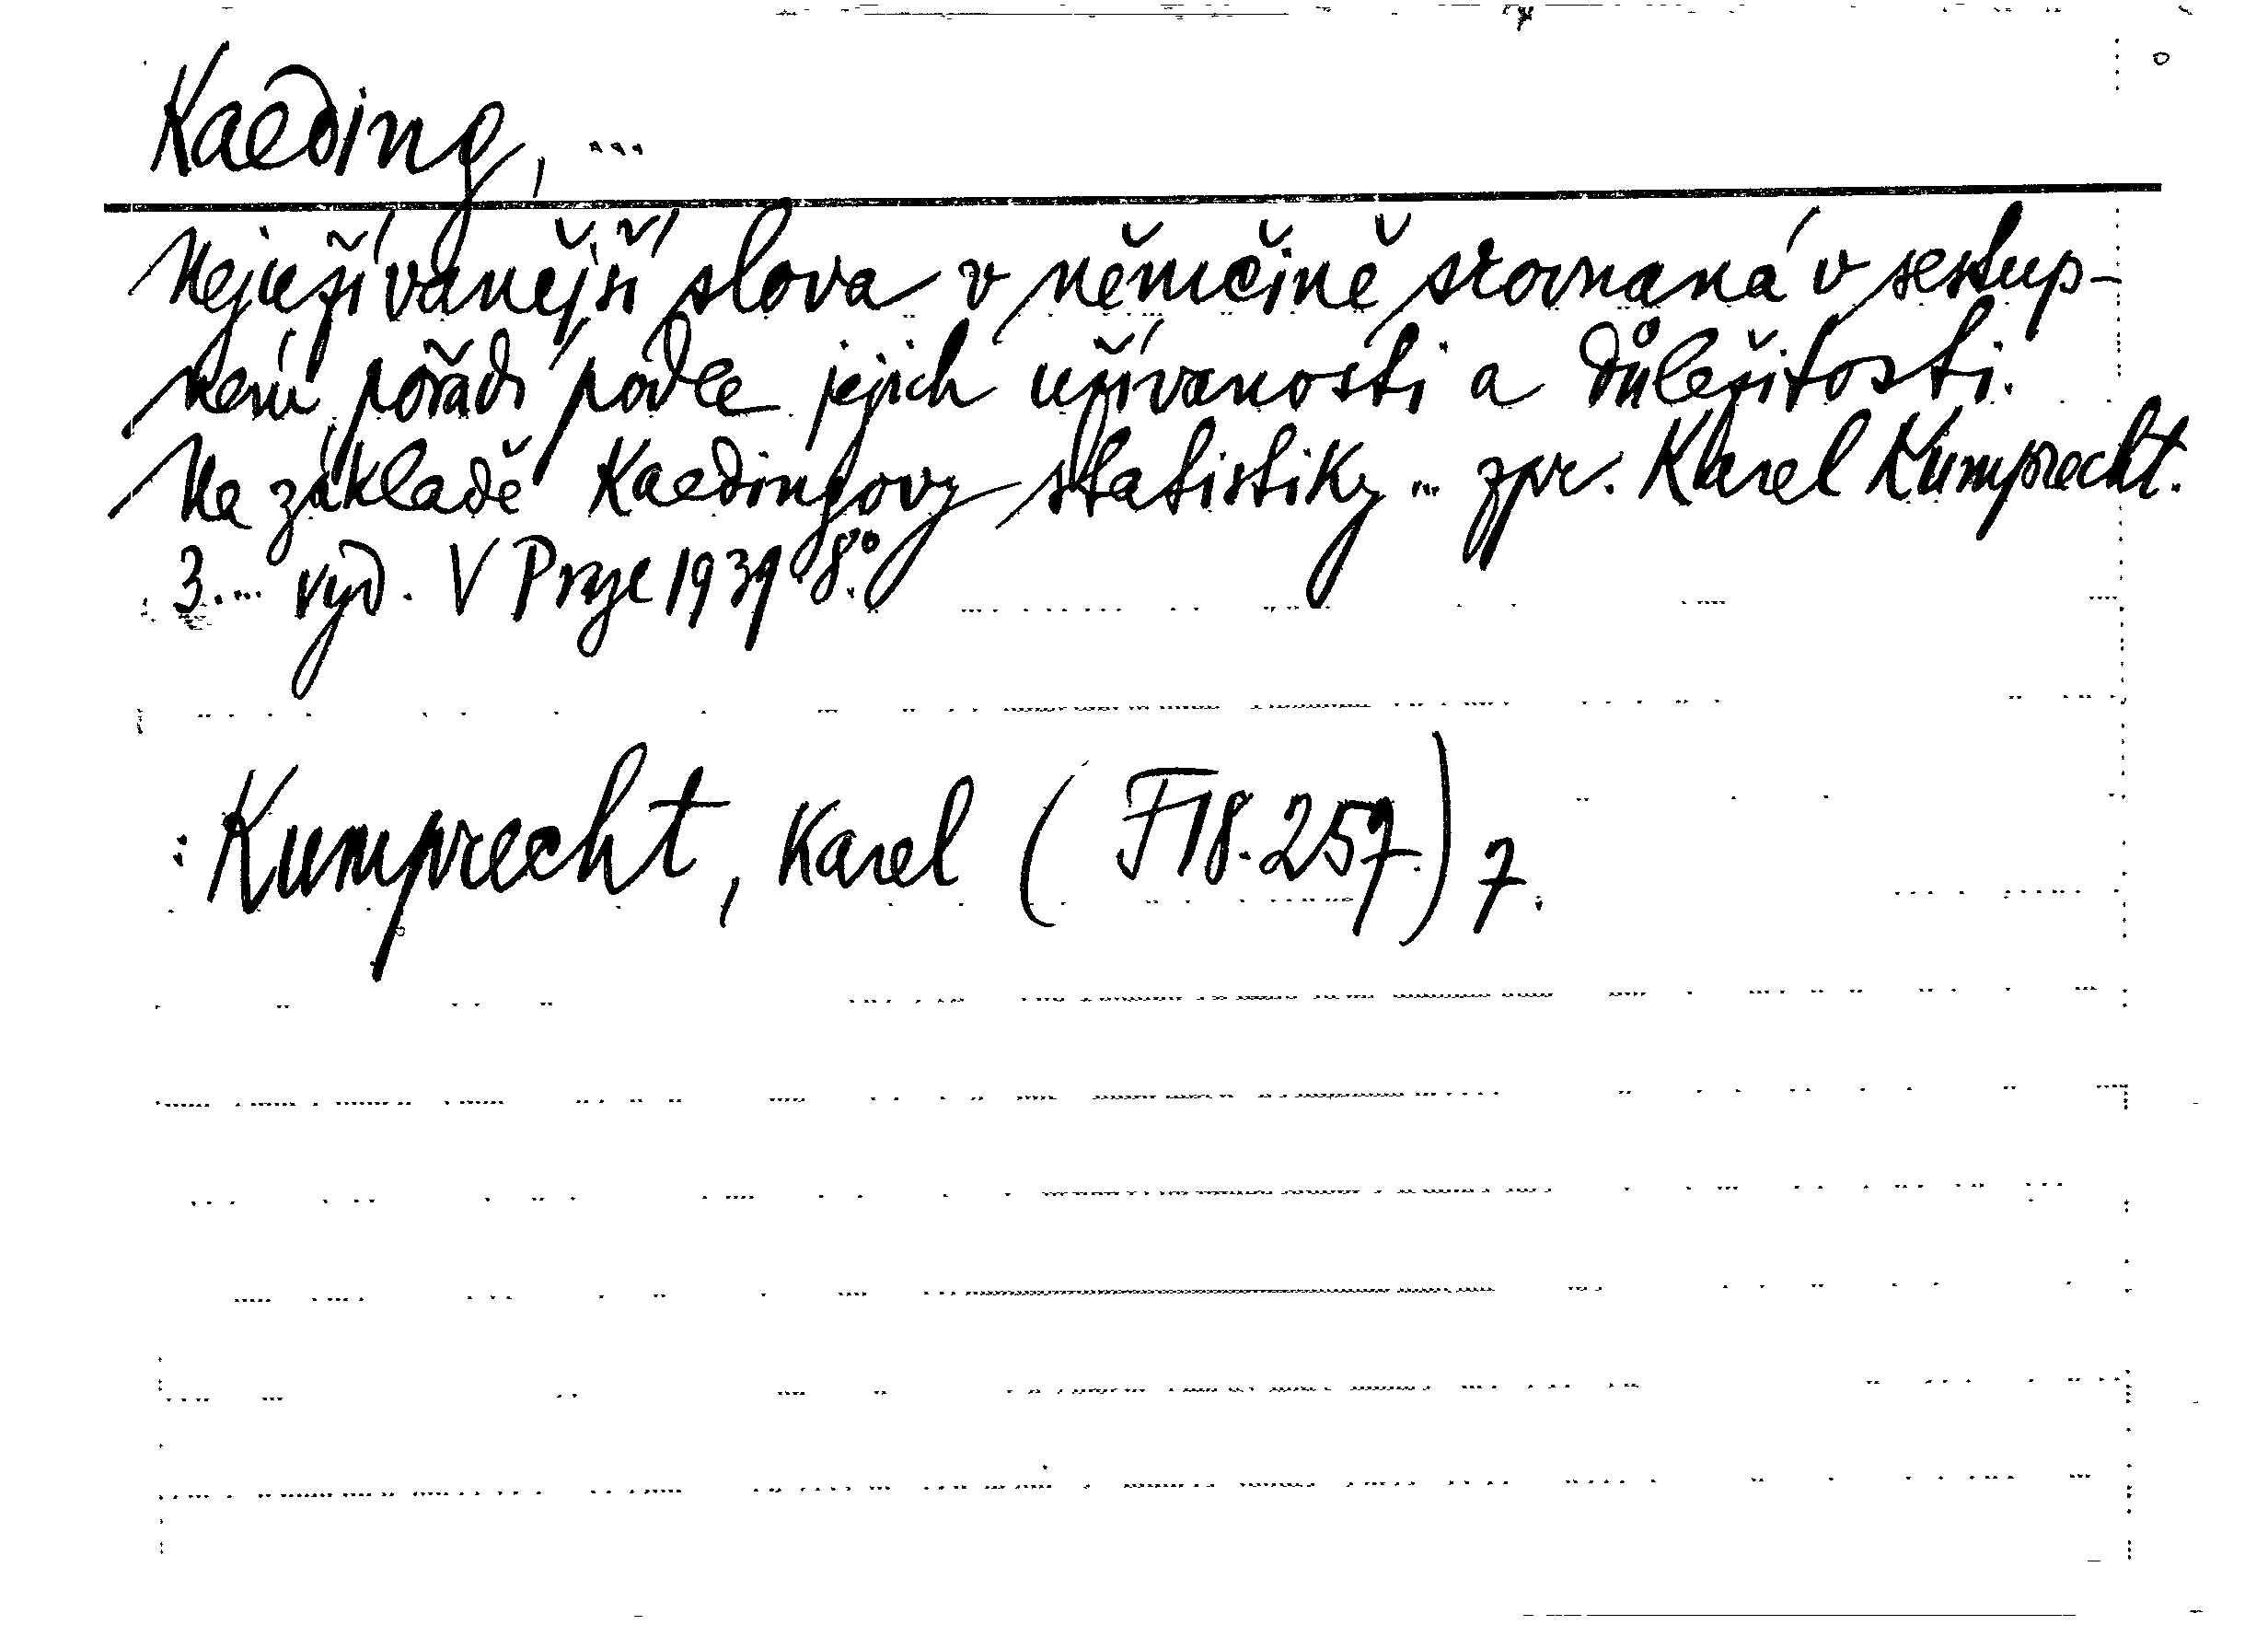 Kaeding, ...
Nejužívanější slova v němčině srovnaná v sestup-
ném pořadí podle jejich užívanosti a důležitosti.
Na základě Kaedingovy statistiky ... zpr. Karel Kumprecht.
3. ... vyd. V Praze 1939. 8.°
Kumprecht, Karel (F 18.257.) 7.